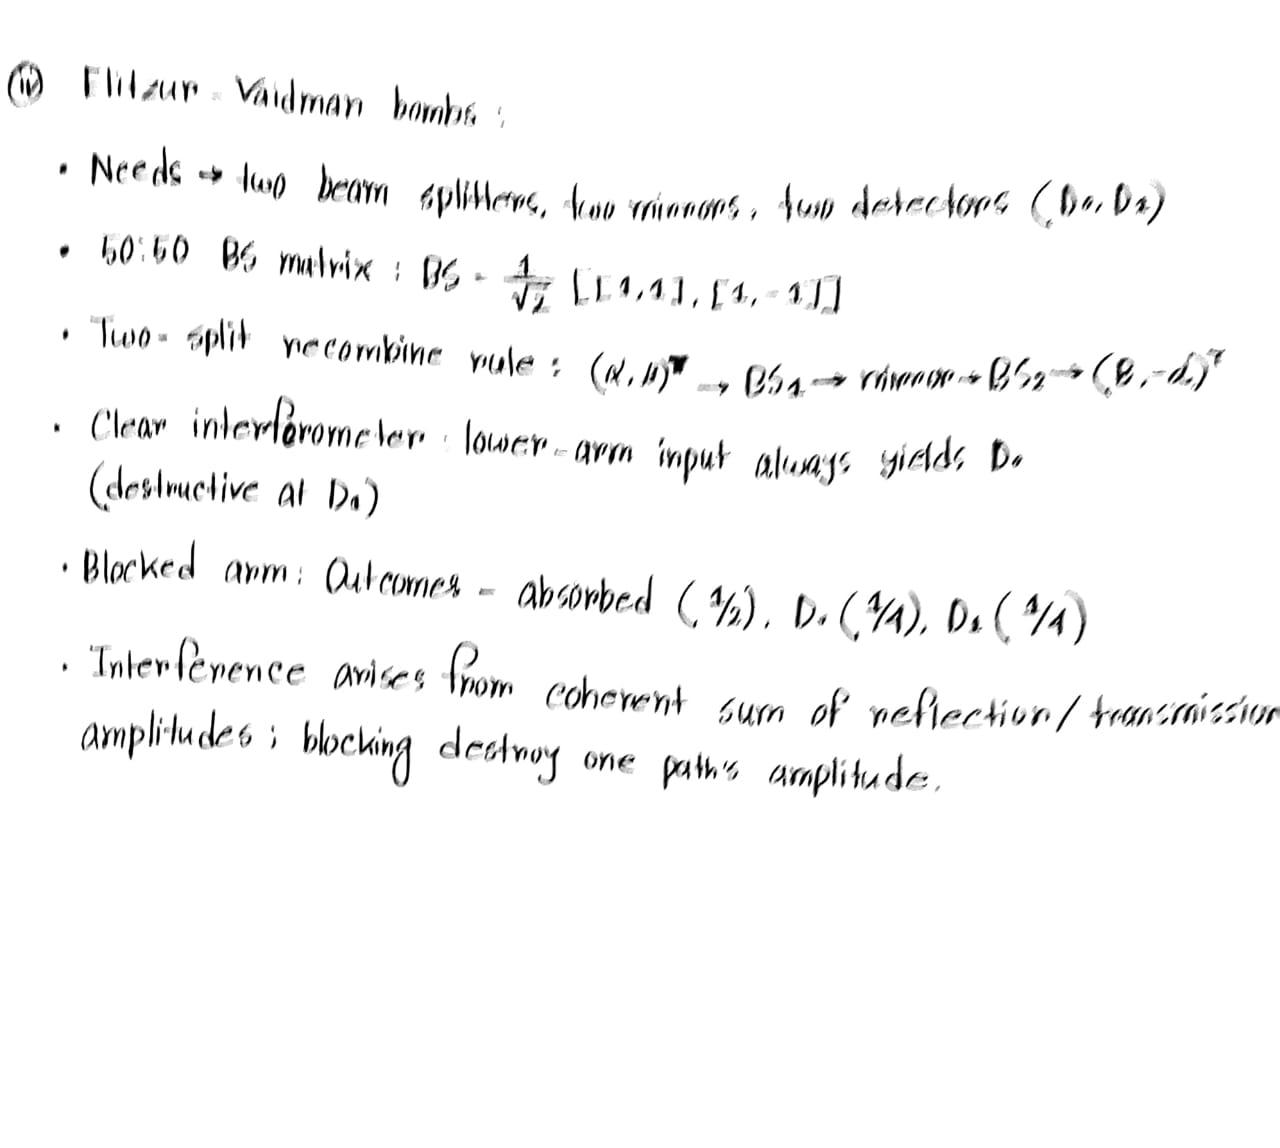 (iv) Elitzur - Vaidman bombs :
• Needs → two beam splitters, two mirrors, two detectors (D₀, D₁)
• 50:50 BS matrix : BS = 1/√2 [[1,1], [1,-1]]
• Two-split recombine rule : (α, β)ᵀ → BS₁ → mirror → BS₂ → (β, -α)ᵀ
• Clear interferometer : lower-arm input always yields D₀
(destructive at D₁)
• Blocked arm : Outcomes - absorbed (1/2), D₀ (1/4), D₁ (1/4)
• Interference arises from coherent sum of reflection/transmission
amplitudes ; blocking destroy one path's amplitude.